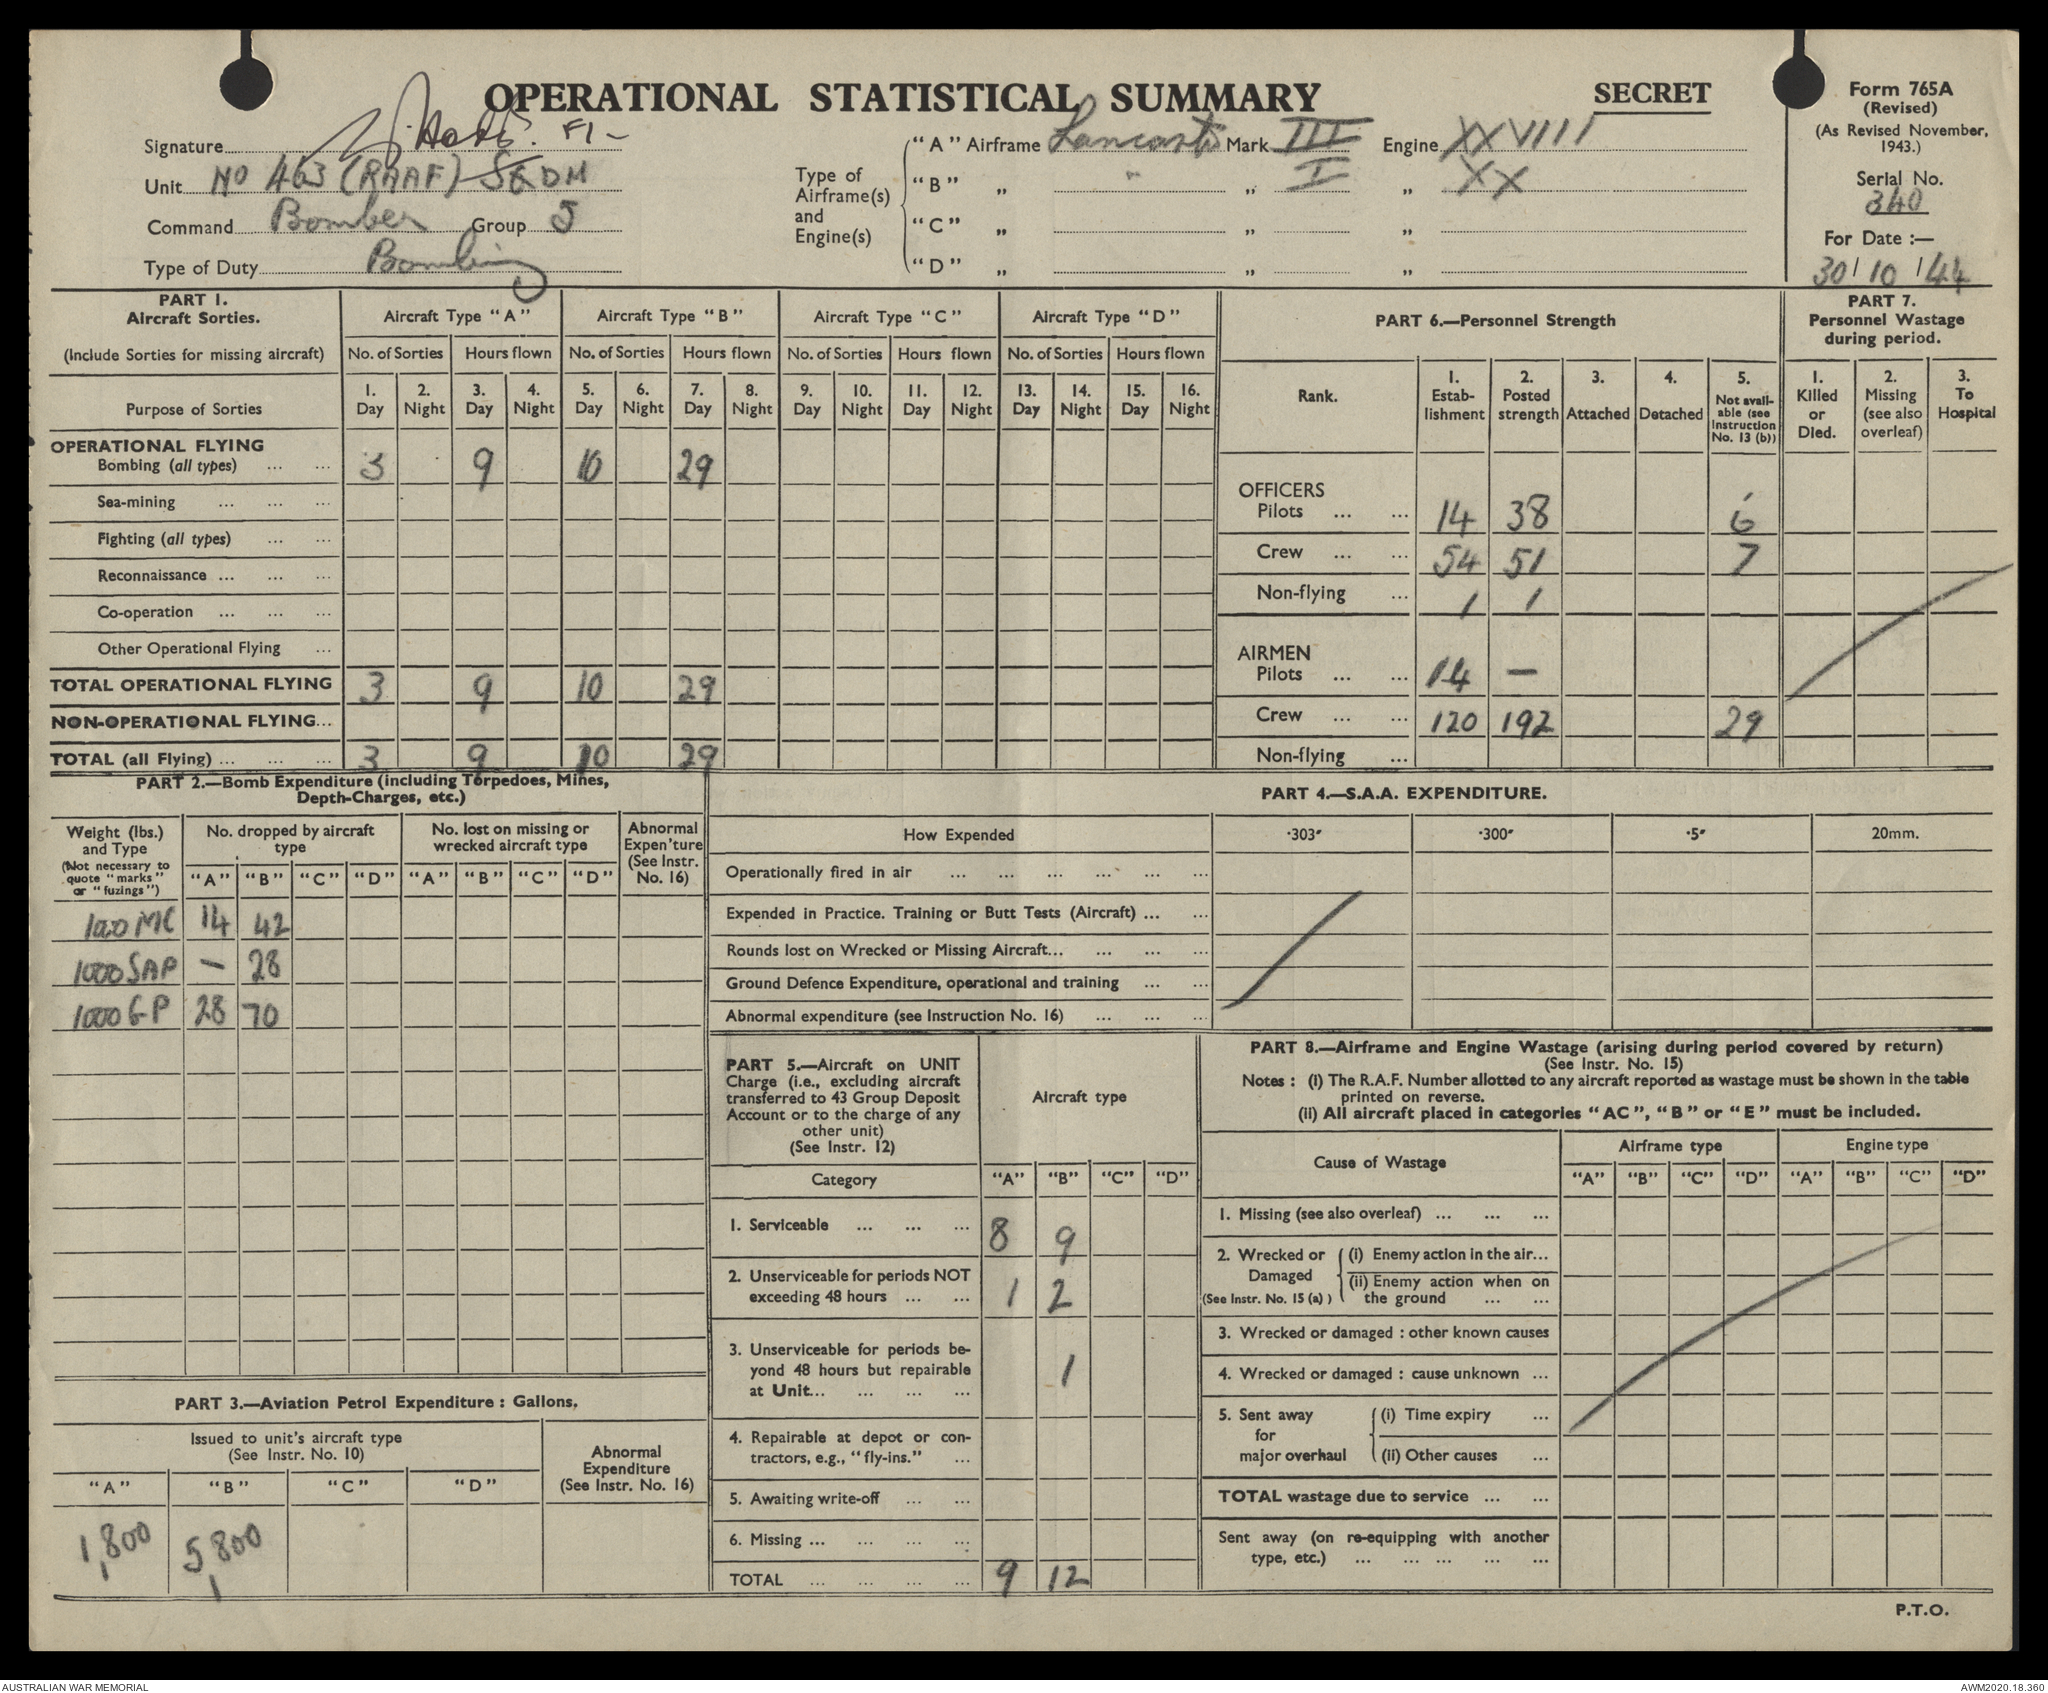 OPERATIONAL STATISTICAL SUMMARY
SECRET
Form 765A
(Revised)
(As Revised November,
1943.)
Serial No.
340
For Date :—
30/10/44
Signature
Unit No 463 (RAAF) SQDN
Command Bomber Group 5
Type of Duty Bombing
Type of
Airframe(s)
and
Engine(s)
"A" Airframe Lancaster Mark III Engine XXVIII
"B" „ " „ I „ XX
"C" „ „ „
"D" „ „ „
PART 1.
Aircraft Sorties.
(Include Sorties for missing aircraft)
Purpose of Sorties
Aircraft Type "A" Aircraft Type "B" Aircraft Type "C" Aircraft Type "D"
No. of Sorties Hours flown No. of Sorties Hours flown No. of Sorties Hours flown No. of Sorties Hours flown
1. 2. 3. 4. 5. 6. 7. 8. 9. 10. 11. 12. 13. 14. 15. 16.
Day Night Day Night Day Night Day Night Day Night Day Night Day Night Day Night
OPERATIONAL FLYING
Bombing (all types) ... ... 3 9 10 29
Sea-mining ... ... ...
Fighting (all types) ... ...
Reconnaissance ... ... ...
Co-operation ... ... ...
Other Operational Flying ...
TOTAL OPERATIONAL FLYING 3 9 10 29
NON-OPERATIONAL FLYING...
TOTAL (all Flying) ... ... ... 3 9 10 29
PART 6.—Personnel Strength
Rank.
1. Estab-lishment
2. Posted strength
3. Attached
4. Detached
5. Not avail-able (see Instruction No. 13 (b))
OFFICERS
Pilots ... ... 14 38 6
Crew ... ... 54 51 7
Non-flying ... 1 1
AIRMEN
Pilots ... ... 14 —
Crew ... ... 120 192 29
Non-flying ...
PART 7.
Personnel Wastage
during period.
1. Killed or Died.
2. Missing (see also overleaf)
3. To Hospital
PART 2.—Bomb Expenditure (including Torpedoes, Mines,
Depth-Charges, etc.)
Weight (lbs.)
and Type
(Not necessary to
quote "marks"
or "fuzings")
No. dropped by aircraft
type
No. lost on missing or
wrecked aircraft type
Abnormal
Expen'ture
(See Instr.
No. 16)
"A" "B" "C" "D" "A" "B" "C" "D"
1000 MC 14 42
1000 SAP — 28
1000 GP 28 70
PART 3.—Aviation Petrol Expenditure : Gallons.
Issued to unit's aircraft type
(See Instr. No. 10)
Abnormal
Expenditure
(See Instr. No. 16)
"A" "B" "C" "D"
1,800 5,800
PART 4.—S.A.A. EXPENDITURE.
How Expended ·303" ·300" ·5" 20mm.
Operationally fired in air ... ... ... ... ... ...
Expended in Practice. Training or Butt Tests (Aircraft) ... ...
Rounds lost on Wrecked or Missing Aircraft... ... ... ...
Ground Defence Expenditure, operational and training ... ...
Abnormal expenditure (see Instruction No. 16) ... ... ...
PART 5.—Aircraft on UNIT
Charge (i.e., excluding aircraft
transferred to 43 Group Deposit
Account or to the charge of any
other unit)
(See Instr. 12)
Aircraft type
Category "A" "B" "C" "D"
1. Serviceable ... ... ... 8 9
2. Unserviceable for periods NOT
exceeding 48 hours ... ... 1 2
3. Unserviceable for periods be-
yond 48 hours but repairable
at Unit... ... ... ... 1
4. Repairable at depot or con-
tractors, e.g., "fly-ins." ...
5. Awaiting write-off ... ...
6. Missing ... ... ... ...
TOTAL ... ... ... ... 9 12
PART 8.—Airframe and Engine Wastage (arising during period covered by return)
(See Instr. No. 15)
Notes : (i) The R.A.F. Number allotted to any aircraft reported as wastage must be shown in the table
printed on reverse.
(ii) All aircraft placed in categories "AC", "B" or "E" must be included.
Cause of Wastage
Airframe type Engine type
"A" "B" "C" "D" "A" "B" "C" "D"
1. Missing (see also overleaf) ... ... ...
2. Wrecked or
Damaged
(See Instr. No. 15 (a) )
(i) Enemy action in the air...
(ii) Enemy action when on
the ground ... ...
3. Wrecked or damaged : other known causes
4. Wrecked or damaged : cause unknown ...
5. Sent away
for
major overhaul
(i) Time expiry ...
(ii) Other causes ...
TOTAL wastage due to service ... ...
Sent away (on re-equipping with another
type, etc.) ... ... ... ... ...
P.T.O.
AUSTRALIAN WAR MEMORIAL
AWM2020.18.360